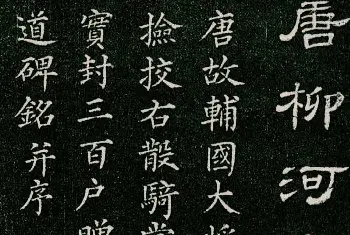 唐柳河
唐故輔國大將
撿挍右散騎常
實封三百户贈
道碑銘并序